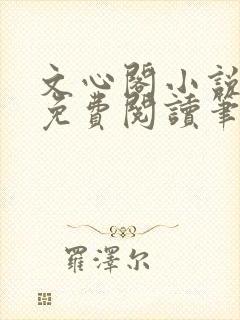 文心閣小說
免費閱讀筆
羅澤尔